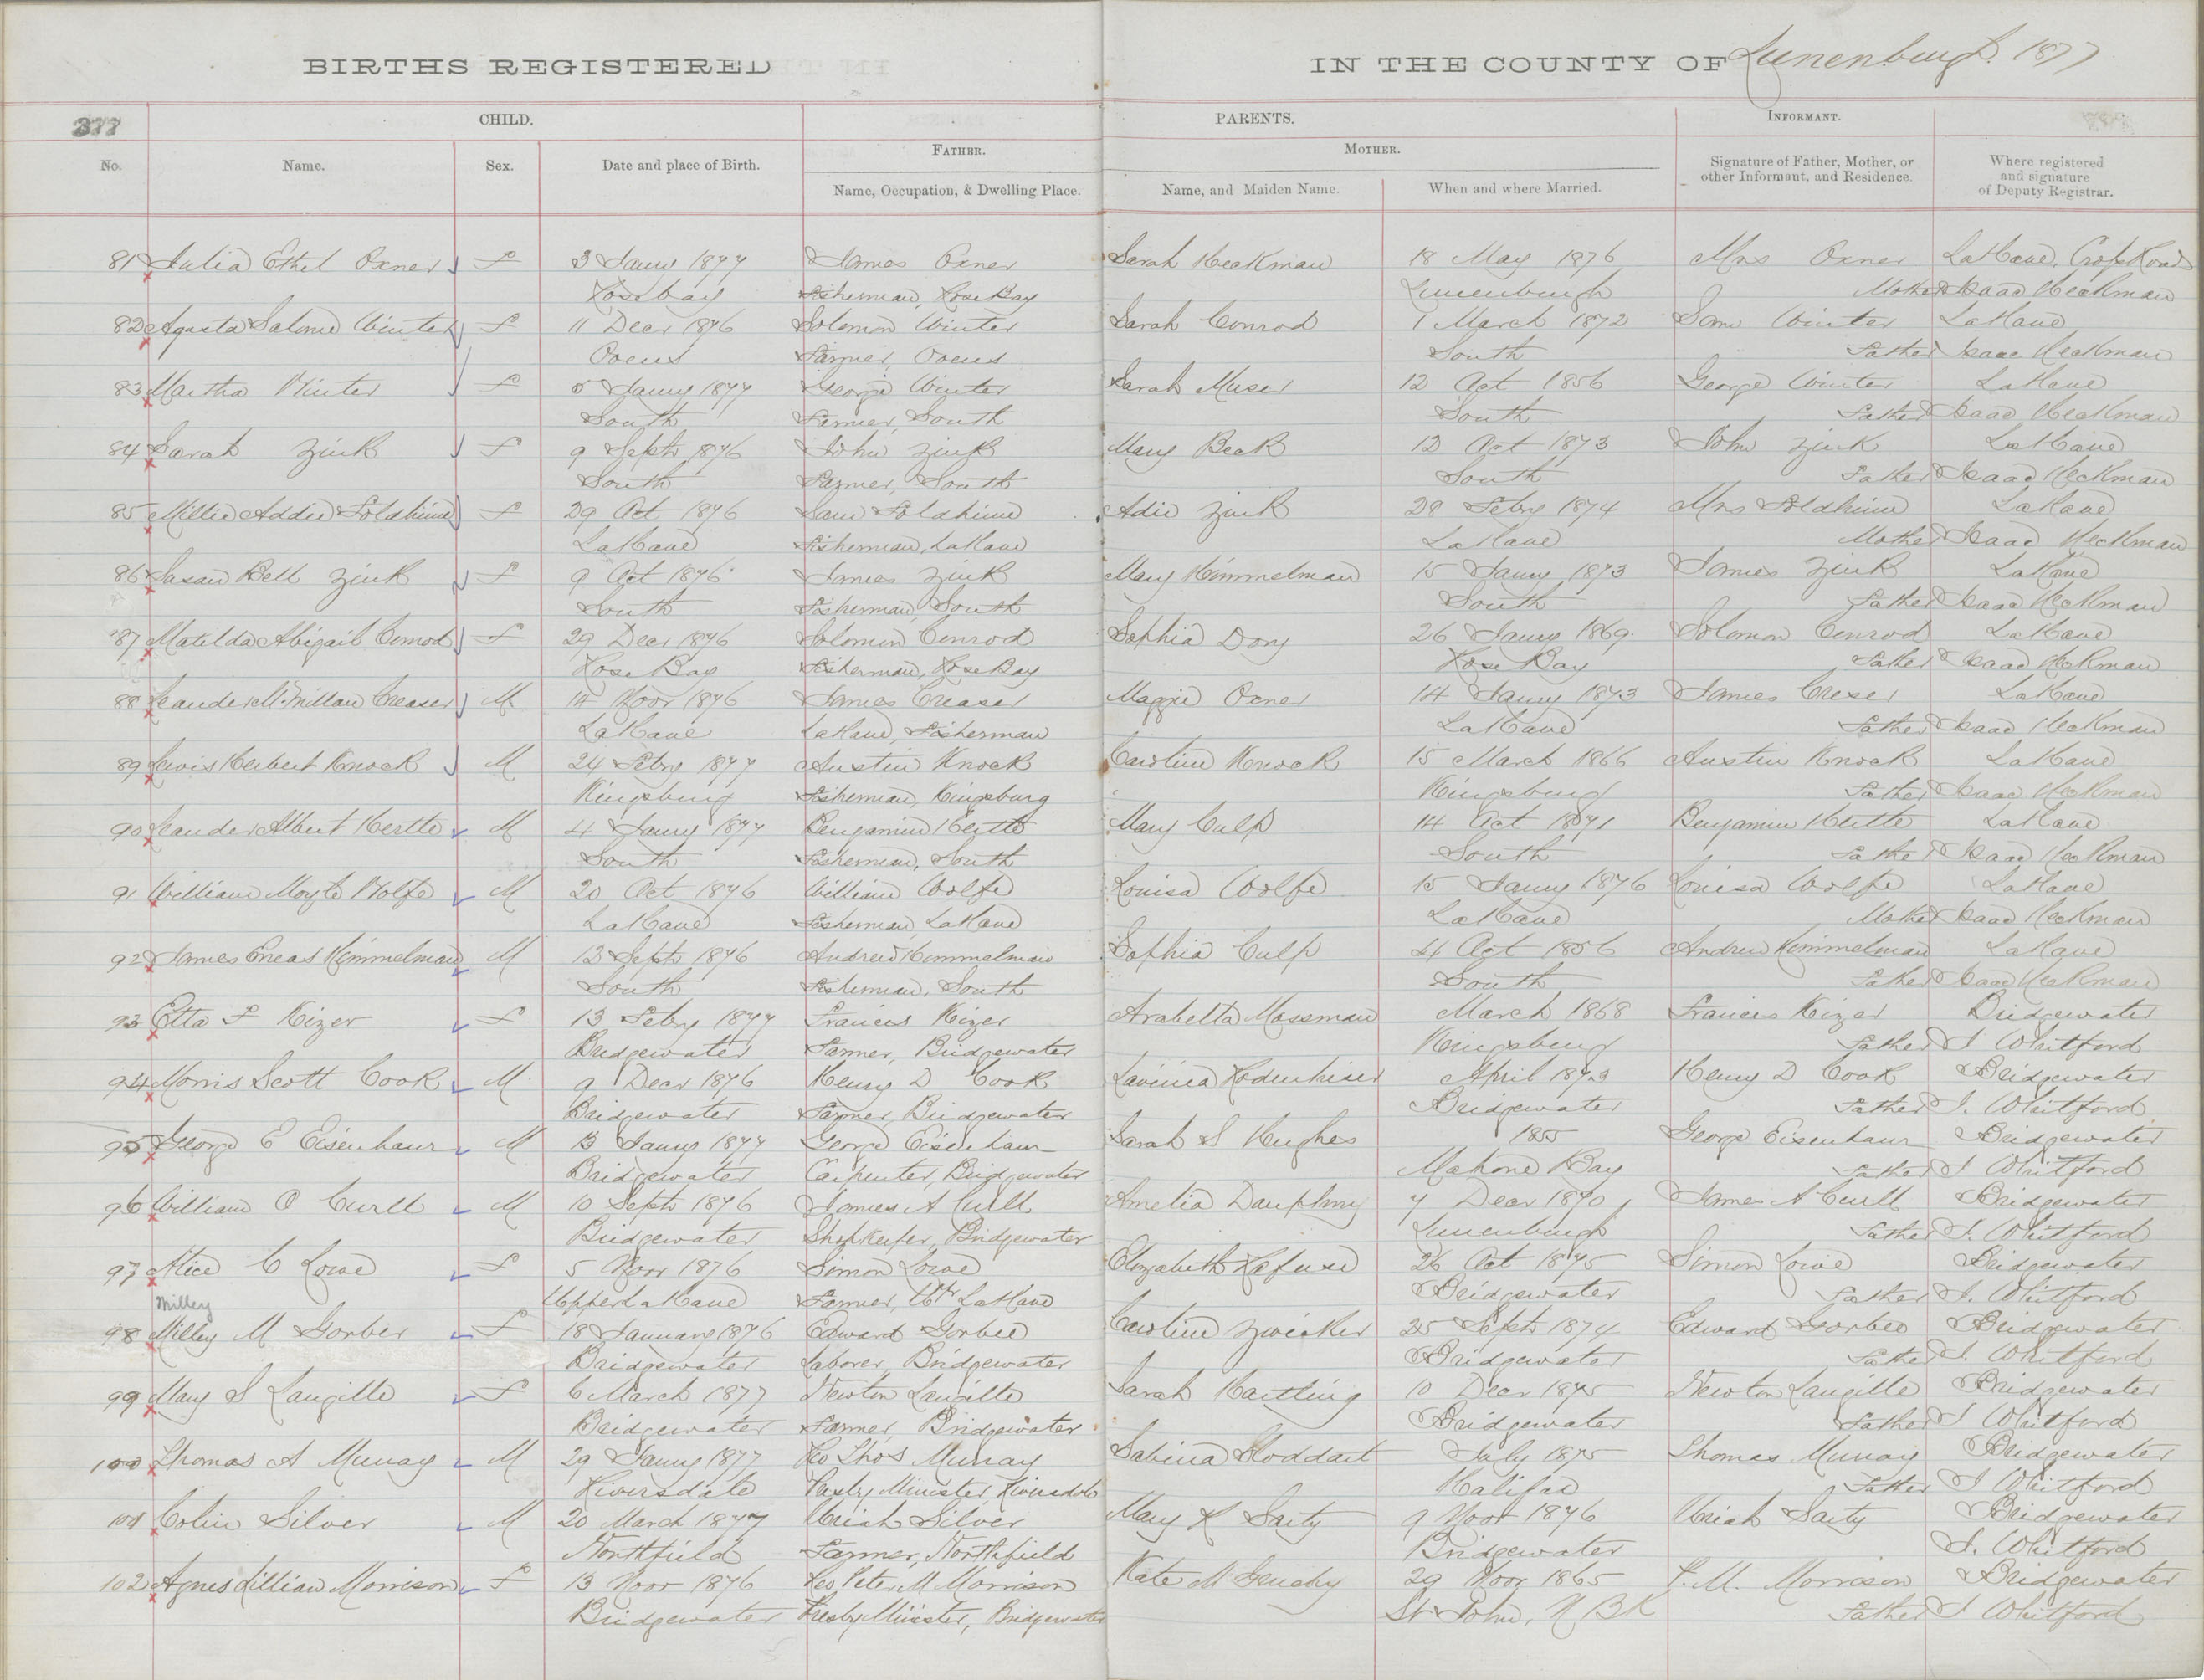 BIRTHS REGISTERED IN THE COUNTY OF Lunenburgh 1877
377 CHILD. PARENTS. INFORMANT.
No. Name. Sex. Date and place of Birth. FATHER. MOTHER. Signature of Father, Mother, or other Informant, and Residence. Where registered and signature of Deputy Registrar.
Name, Occupation, & Dwelling Place. Name, and Maiden Name. When and where Married.
81 Julia Ethel Oxner F 3 Jany 1877 James Oxner Sarah Heckman 18 May 1876 Mrs Oxner LaHave, Cross Roads
Rose bay Fisherman, Rose Bay Lunenburgh Mother Isaac Heckman
82 Agusta Salome Winter F 11 Decr 1876 Solomon Winter Sarah Conrod 1 March 1872 Winter LaHave
Ovens Farmer, Ovens South Father Isaac Heckman
83 Martha Winter F 5 Jany 1877 George Winter Sarah Muser 12 Oct 1856 George Winter LaHave
South Farmer, South South Father Isaac Heckman
84 Sarah Zink F 9 Septr 1876 John Zink Mary Beck 12 Oct 1873 John Zink LaHave
South Farmer, South South Father Isaac Heckman
85 Millie Addie F 29 Oct 1876 Adie Zink 28 Feby 1874 Mrs LaHave
LaHave Fisherman, LaHave LaHave Mother Isaac Heckman
86 Susan Bell Zink F 9 Oct 1876 James Zink Mary Himmelman 15 Jany 1873 James Zink LaHave
South Fisherman, South South Father Isaac Heckman
87 Matilda Abigail Conrod F 29 Decr 1876 Solomon Conrod Sophia Dory 26 Jany 1869 Solomon Conrod LaHave
Rose Bay Fisherman, Rose Bay Rose Bay Father Isaac Heckman
88 Leander McMillan Creaser M 14 Novr 1876 James Creaser Maggie Oxner 14 Jany 1873 James Creser LaHave
LaHave LaHave, Fisherman LaHave Father Isaac Heckman
89 Lewis Herbert Knock M 24 Feby 1877 Austin Knock Caroline Knock 15 March 1866 Austin Knock LaHave
Kingsburg Fisherman, Kingsburg Kingsburg Father Isaac Heckman
90 Leander Albert Hertle M 4 Jany 1877 Benjamin Hertle Mary Culp 14 Oct 1871 Benjamin Hertle LaHave
South Fisherman, South South Father Isaac Heckman
91 William Moyle Wolfe M 20 Oct 1876 William Wolfe Louisa Wolfe 15 Jany 1876 Louisa Wolfe LaHave
LaHave Fisherman, LaHave LaHave Mother Isaac Heckman
92 James Eneas Himmelman M 12 Septr 1876 Andrew Himmelman Sophia Culp 4 Oct 1856 Andrew Himmelman LaHave
South Fisherman, South South Father Isaac Heckman
93 Etta F Kizer F 13 Feby 1877 Francis Kizer Arabella Mossman March 1868 Francis Kizer Bridgewater
Bridgewater Farmer, Bridgewater Kingsburg Father I Whitford
94 Morris Scott Cook M 9 Decr 1876 Henry D Cook Lavinia Rodenhiser April 1873 Henry D Cook Bridgewater
Bridgewater Farmer, Bridgewater Bridgewater Father I. Whitford
95 George E Eisenhaur M 13 Jany 1877 George Eisenhaur Sarah S Hughes 1855 George Eisenhaur Bridgewater
Bridgewater Carpenter, Bridgewater Mahone Bay Father I Whitford
96 William O Curll M 10 Septr 1876 James A Curll Amelia Dauphiny 7 Decr 1870 James A Curll Bridgewater
Bridgewater Shopkeeper, Bridgewater Lunenburgh Father I. Whitford
97 Alice C Lowe F 5 Novr 1876 Simon Lowe Elizabeth Rafuse 26 Oct 1875 Simon Lowe Bridgewater
Upper LaHave Farmer, LaHave Bridgewater Father I. Whitford
Milley
98 Milley M Gorber F 18 January 1876 Edward Gorber Caroline Zwicker 25 Septr 1874 Edward Bridgewater
Bridgewater Laborer, Bridgewater Bridgewater Father I. Whitford
99 Mary S Langille F 6 March 1877 Newton Langille Sarah Hartling 10 Decr 1875 Newton Langille Bridgewater
Bridgewater Farmer, Bridgewater Bridgewater Father I Whitford
100 Thomas A Murray M 29 Jany 1877 Rev Thos Murray Sabina Stoddart July 1875 Thomas Murray Bridgewater
Riversdale Presby Minister, Riversdale Halifax Father I Whitford
101 Colin Silver M 20 March 1877 Uriah Silver Mary K Sarty 9 Novr 1876 Uriah Sarty Bridgewater
Northfield Farmer, Northfield Bridgewater I. Whitford
102 Agnes Lillian Morrison F 13 Novr 1876 Rev Peter M Morrison Kate 29 Novr 1865 P. M. Morrison Bridgewater
Bridgewater Presby Minister, Bridgewater St John, N BK Father I Whitford